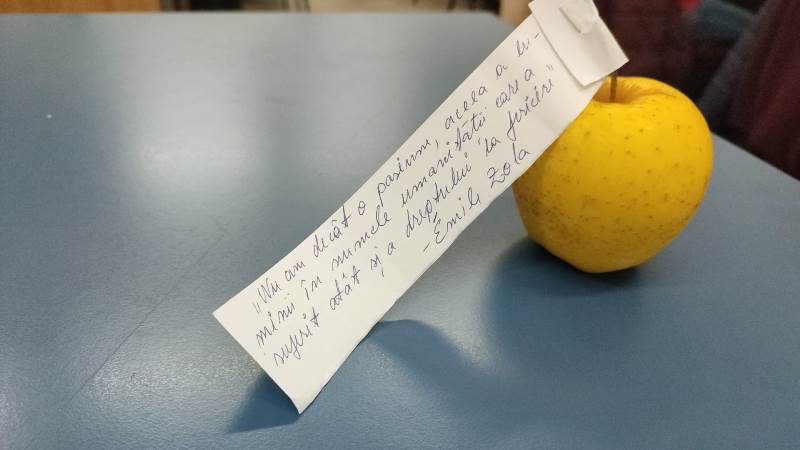 „Nu am decât o pasiune, aceea a lu-
minii în numele umanității care a
suferit atât și a dreptului la fericire”
-Émile Zola